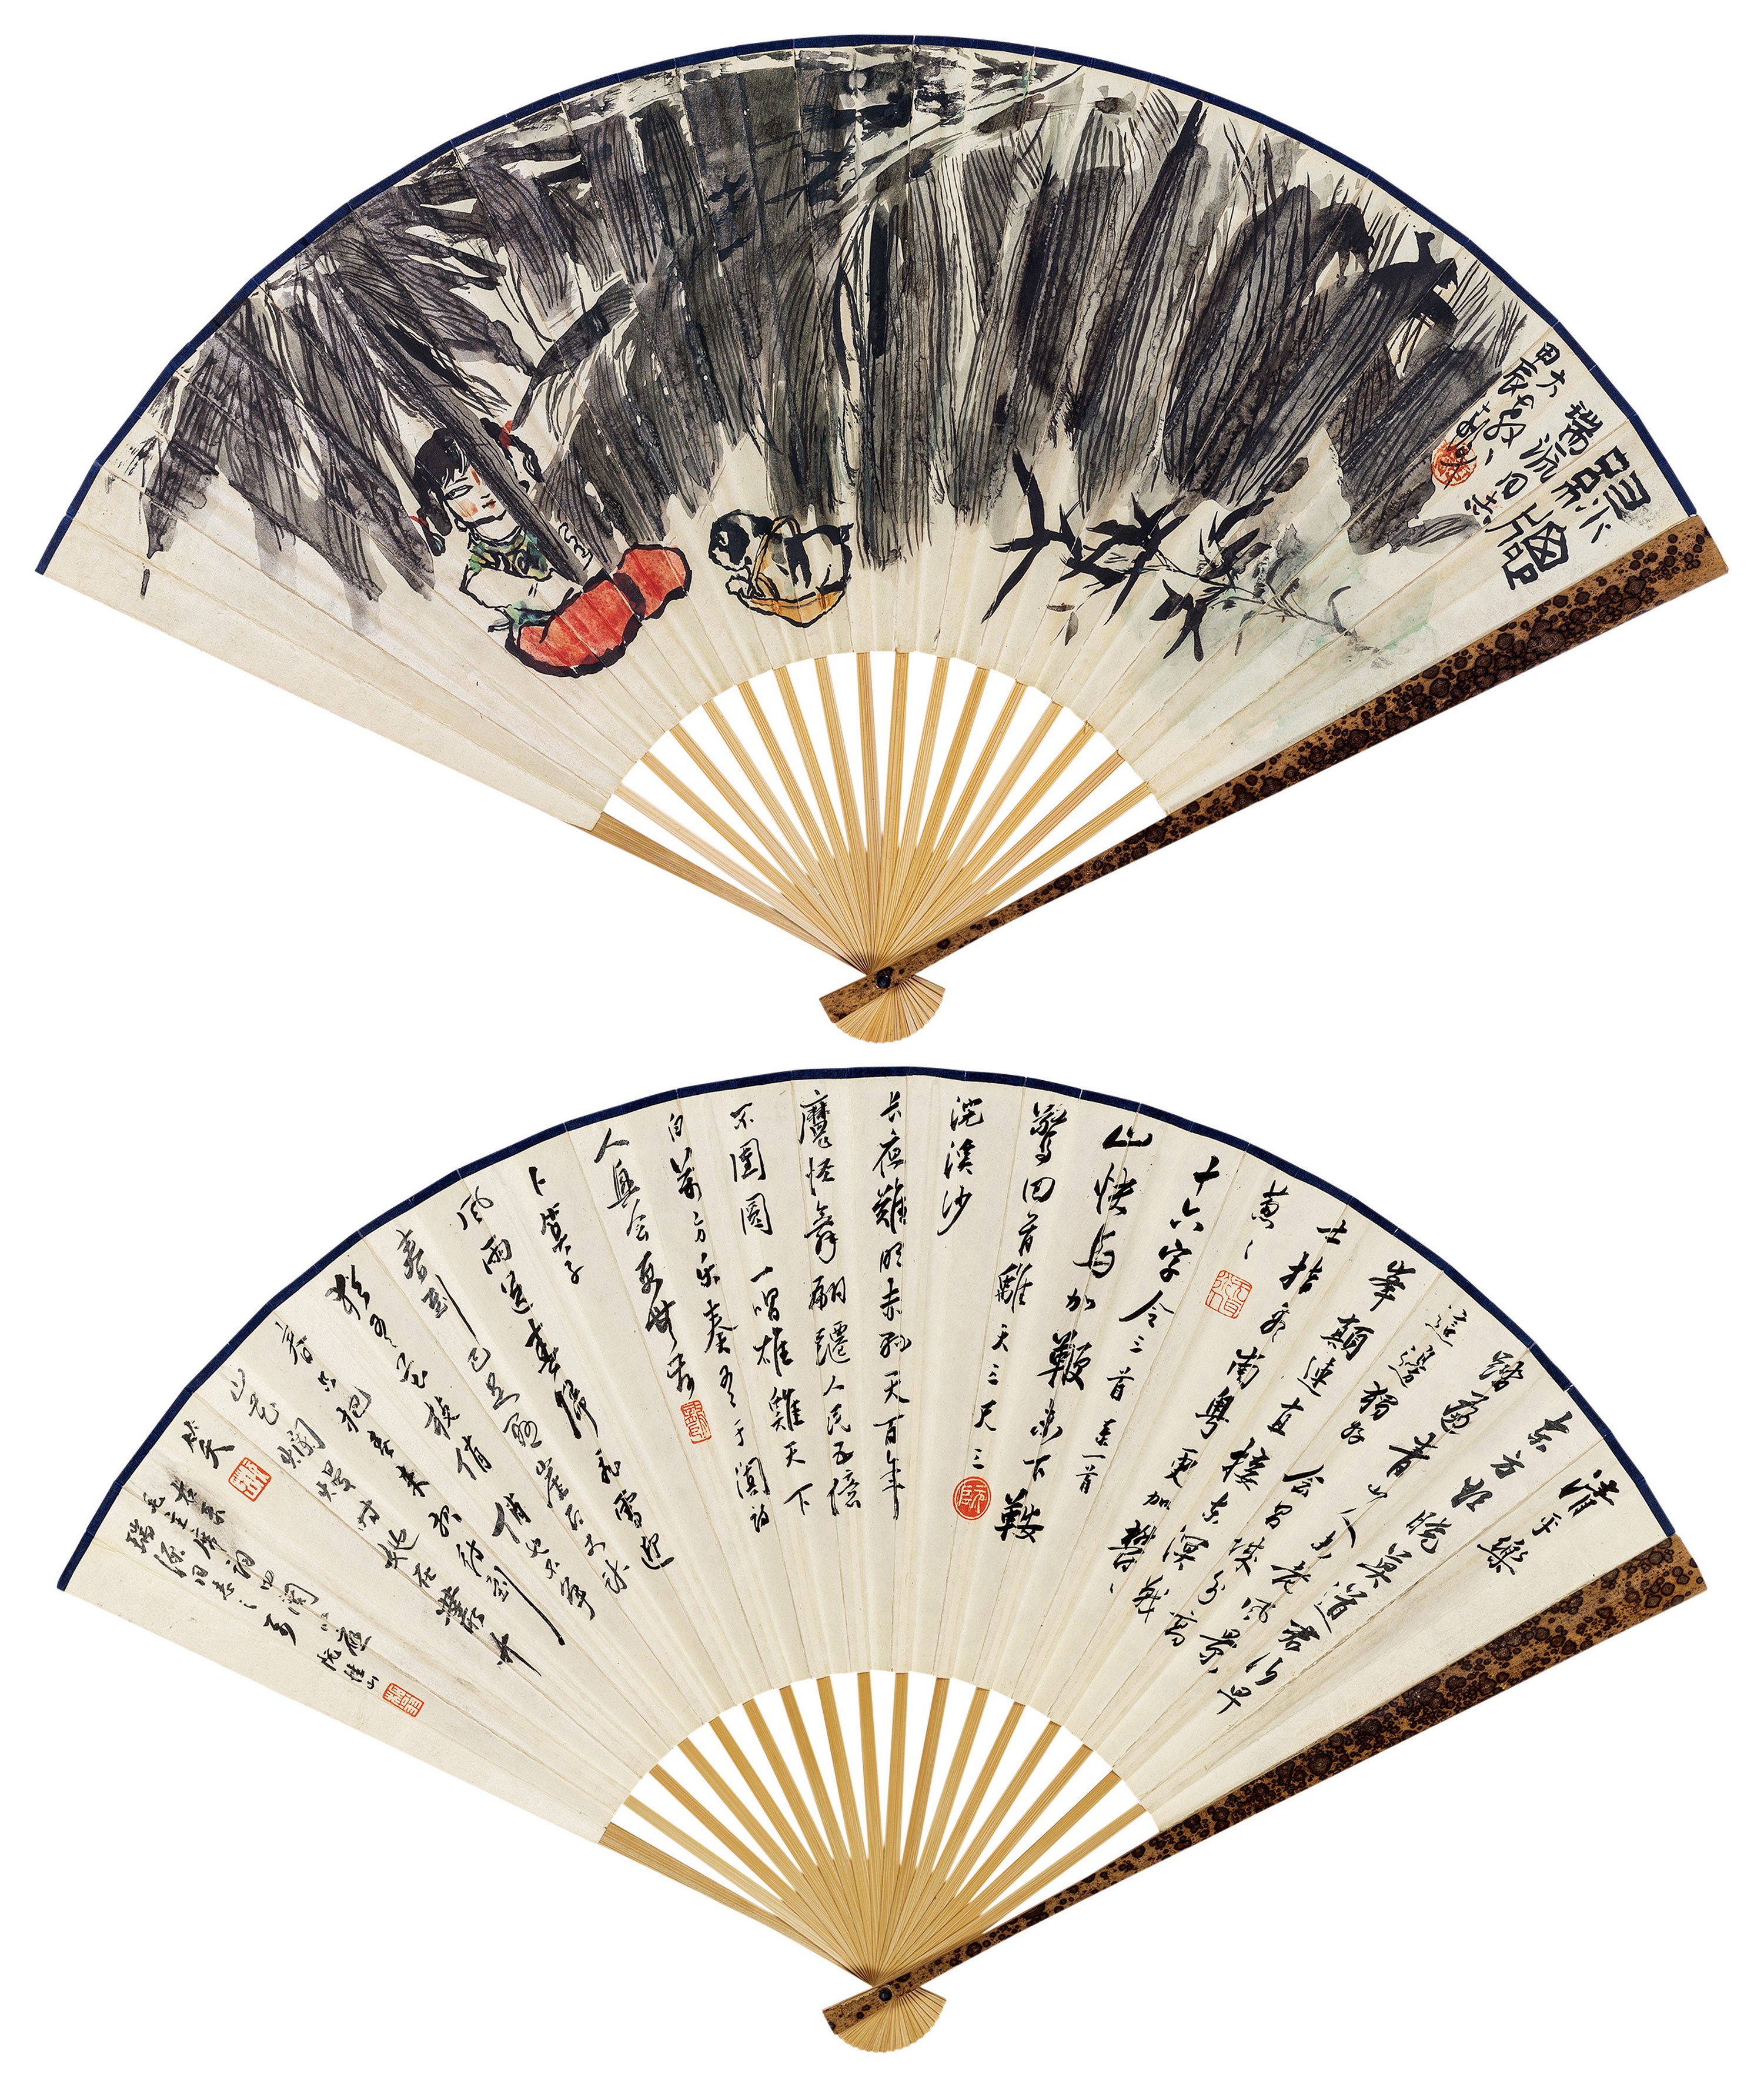 甲辰
同志
清平樂
东方欲曉莫道君行早
踏遍青山人未老風景
這邊獨好會昌城外高
峯顛連直接东溟戰
士指看南粵更加鬱〻
蔥〻
十六字令三首录一首
山快馬加鞭未下鞍
驚回首離天三尺三
浣溪沙
长夜難明赤縣天百年
魔怪舞翩躚人民五億
不團圓一唱雄雞天下
白萬方乐奏有于闐詩
人興會更無前
卜算子
風雨送春歸飛雪迎
春到已是懸崖百丈冰
猶有花枝俏俏也不爭
春只把春来報待到
山花爛熳时她在叢中
笑
右录
毛主席詞四闋應
瑞同志之
阮性山